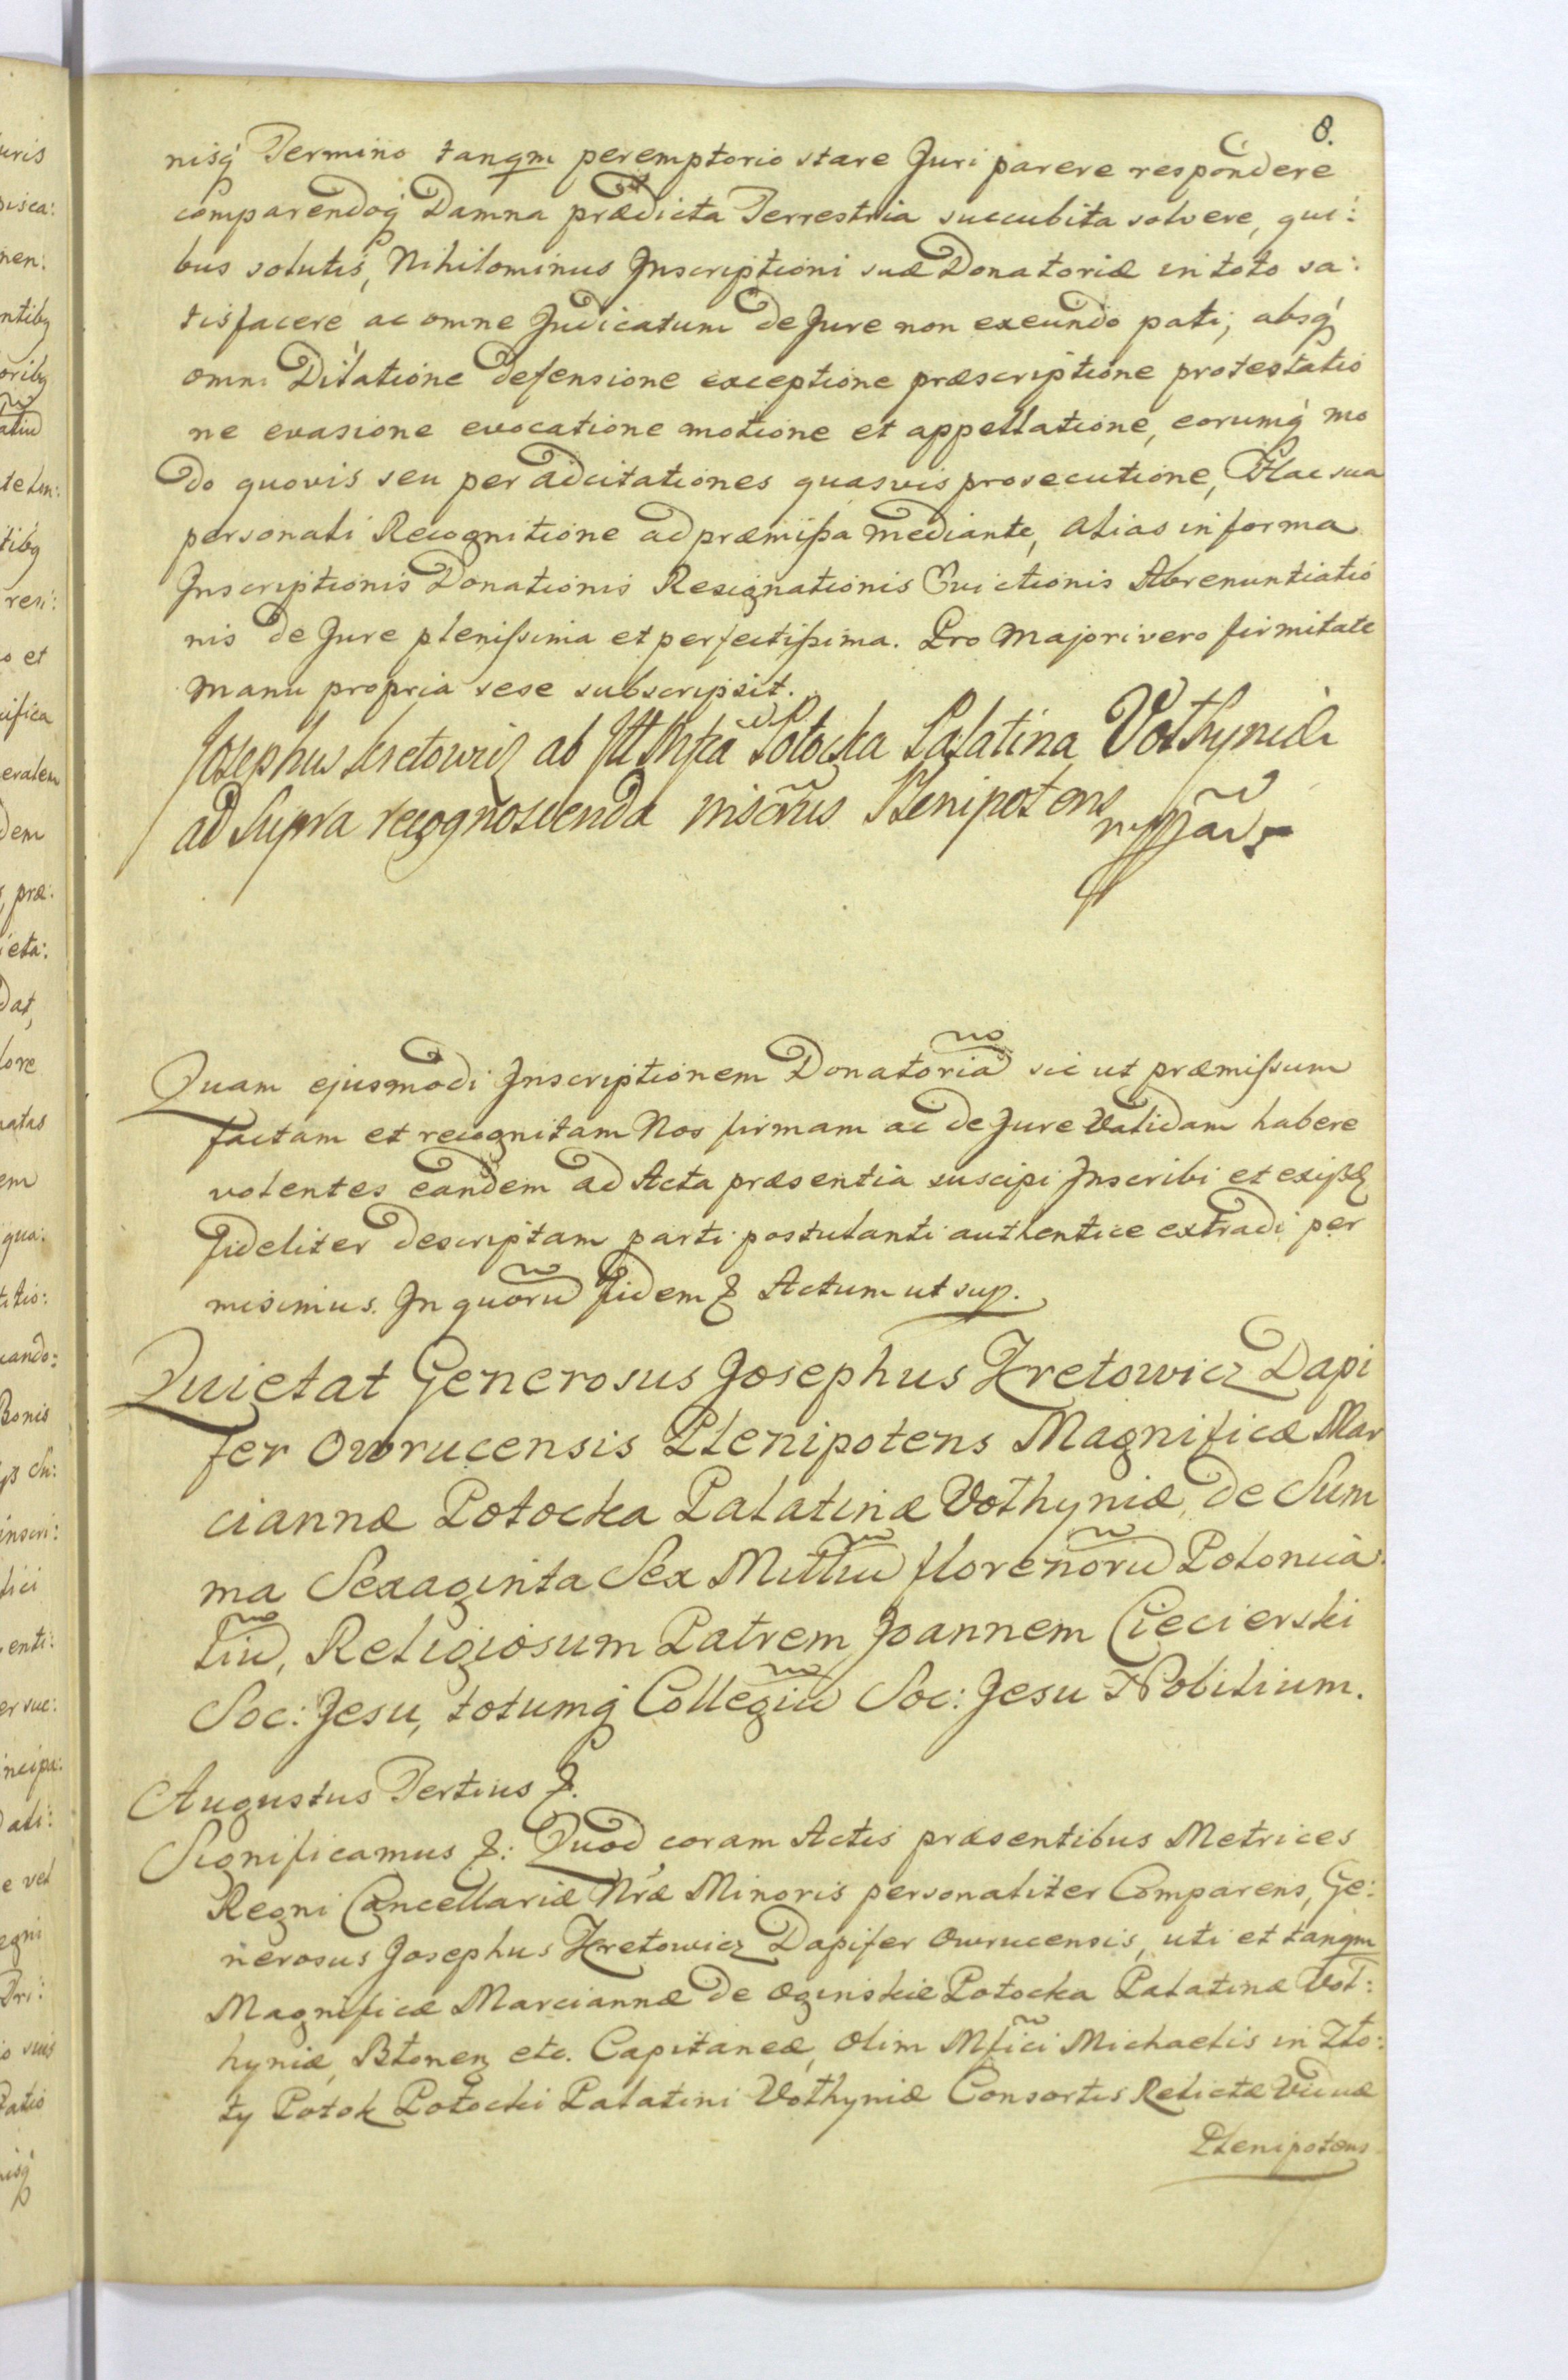 8.
nisq́ Termino tanqm peremptorio stare Juri parere respondere
comparendoq́ Damna prædicta Terrestria succubita solvere, qui:
bus solutis, Nihilominus Inscriptioni suæ Donatoriæ in toto sa:
tisfacere ac omne Judicatum de Jure non exeundo pati, absq́
omni Dilatione defensione exceptione præscriptione protestatio
ne evasione evocatione motione et appellatione, eorumq́ mo
do quovis seu per adcitationes quasvis prosecutione, Hac sua
personali Recognitione ad præmißa mediante, alias in forma
Inscriptionis Donationis Resignationis Evictionis Abrenuntiatio
nis de Jure plenißima et perfectißima. Pro majori vero firmitate
manu propria sese subscripsit.
Josephus Kretowicz ab Potocka Palatina Volhyniæ
ad Supra recognoscenda Plenipotens
Quam ejusmodi Inscriptionem Donatoriã sic ut præmißum
factam et recognitam Nos firmam ac de Jure Validam habere
volentes eandem ad Acta præsentia suscipi Inscribi et
fideliter descriptam parti postulanti authentice extradi per
misimus. In quorũ fidem & Actum ut sup.
Quietat Generosus Josephus Kretowicz Dapi
fer Owrucensis Plenipotens Magnificæ Mar
ciannæ Potocka Palatinæ Volhyniæ, de Sum
ma Sexaginta Sex Milliũ florenorũ Polonica
liũ, Religiosum Patrem Joannem Ciecierski
Soc: Jesu, totumq́ Collegiũ Soc: Jesu Nobilium.
Augustus Tertius &.
Significamus &: Quod coram Actis præsentibus Metrices
Regni Cancellariæ Nræ Minoris personaliter Comparens, Ge:
nerosus Josephus Kretowicz Dapifer Owrucensis, uti et tanqm
Magnificæ Marciannæ de Oginskie Potocka Palatinæ Vol:
hyniæ, Błonen etc. Capitaneæ, olim Mfici Michaelis in Zło:
ty Potok Potocki Palatini Volhyniæ Consortis Relictæ Viduæ
Plenipotens